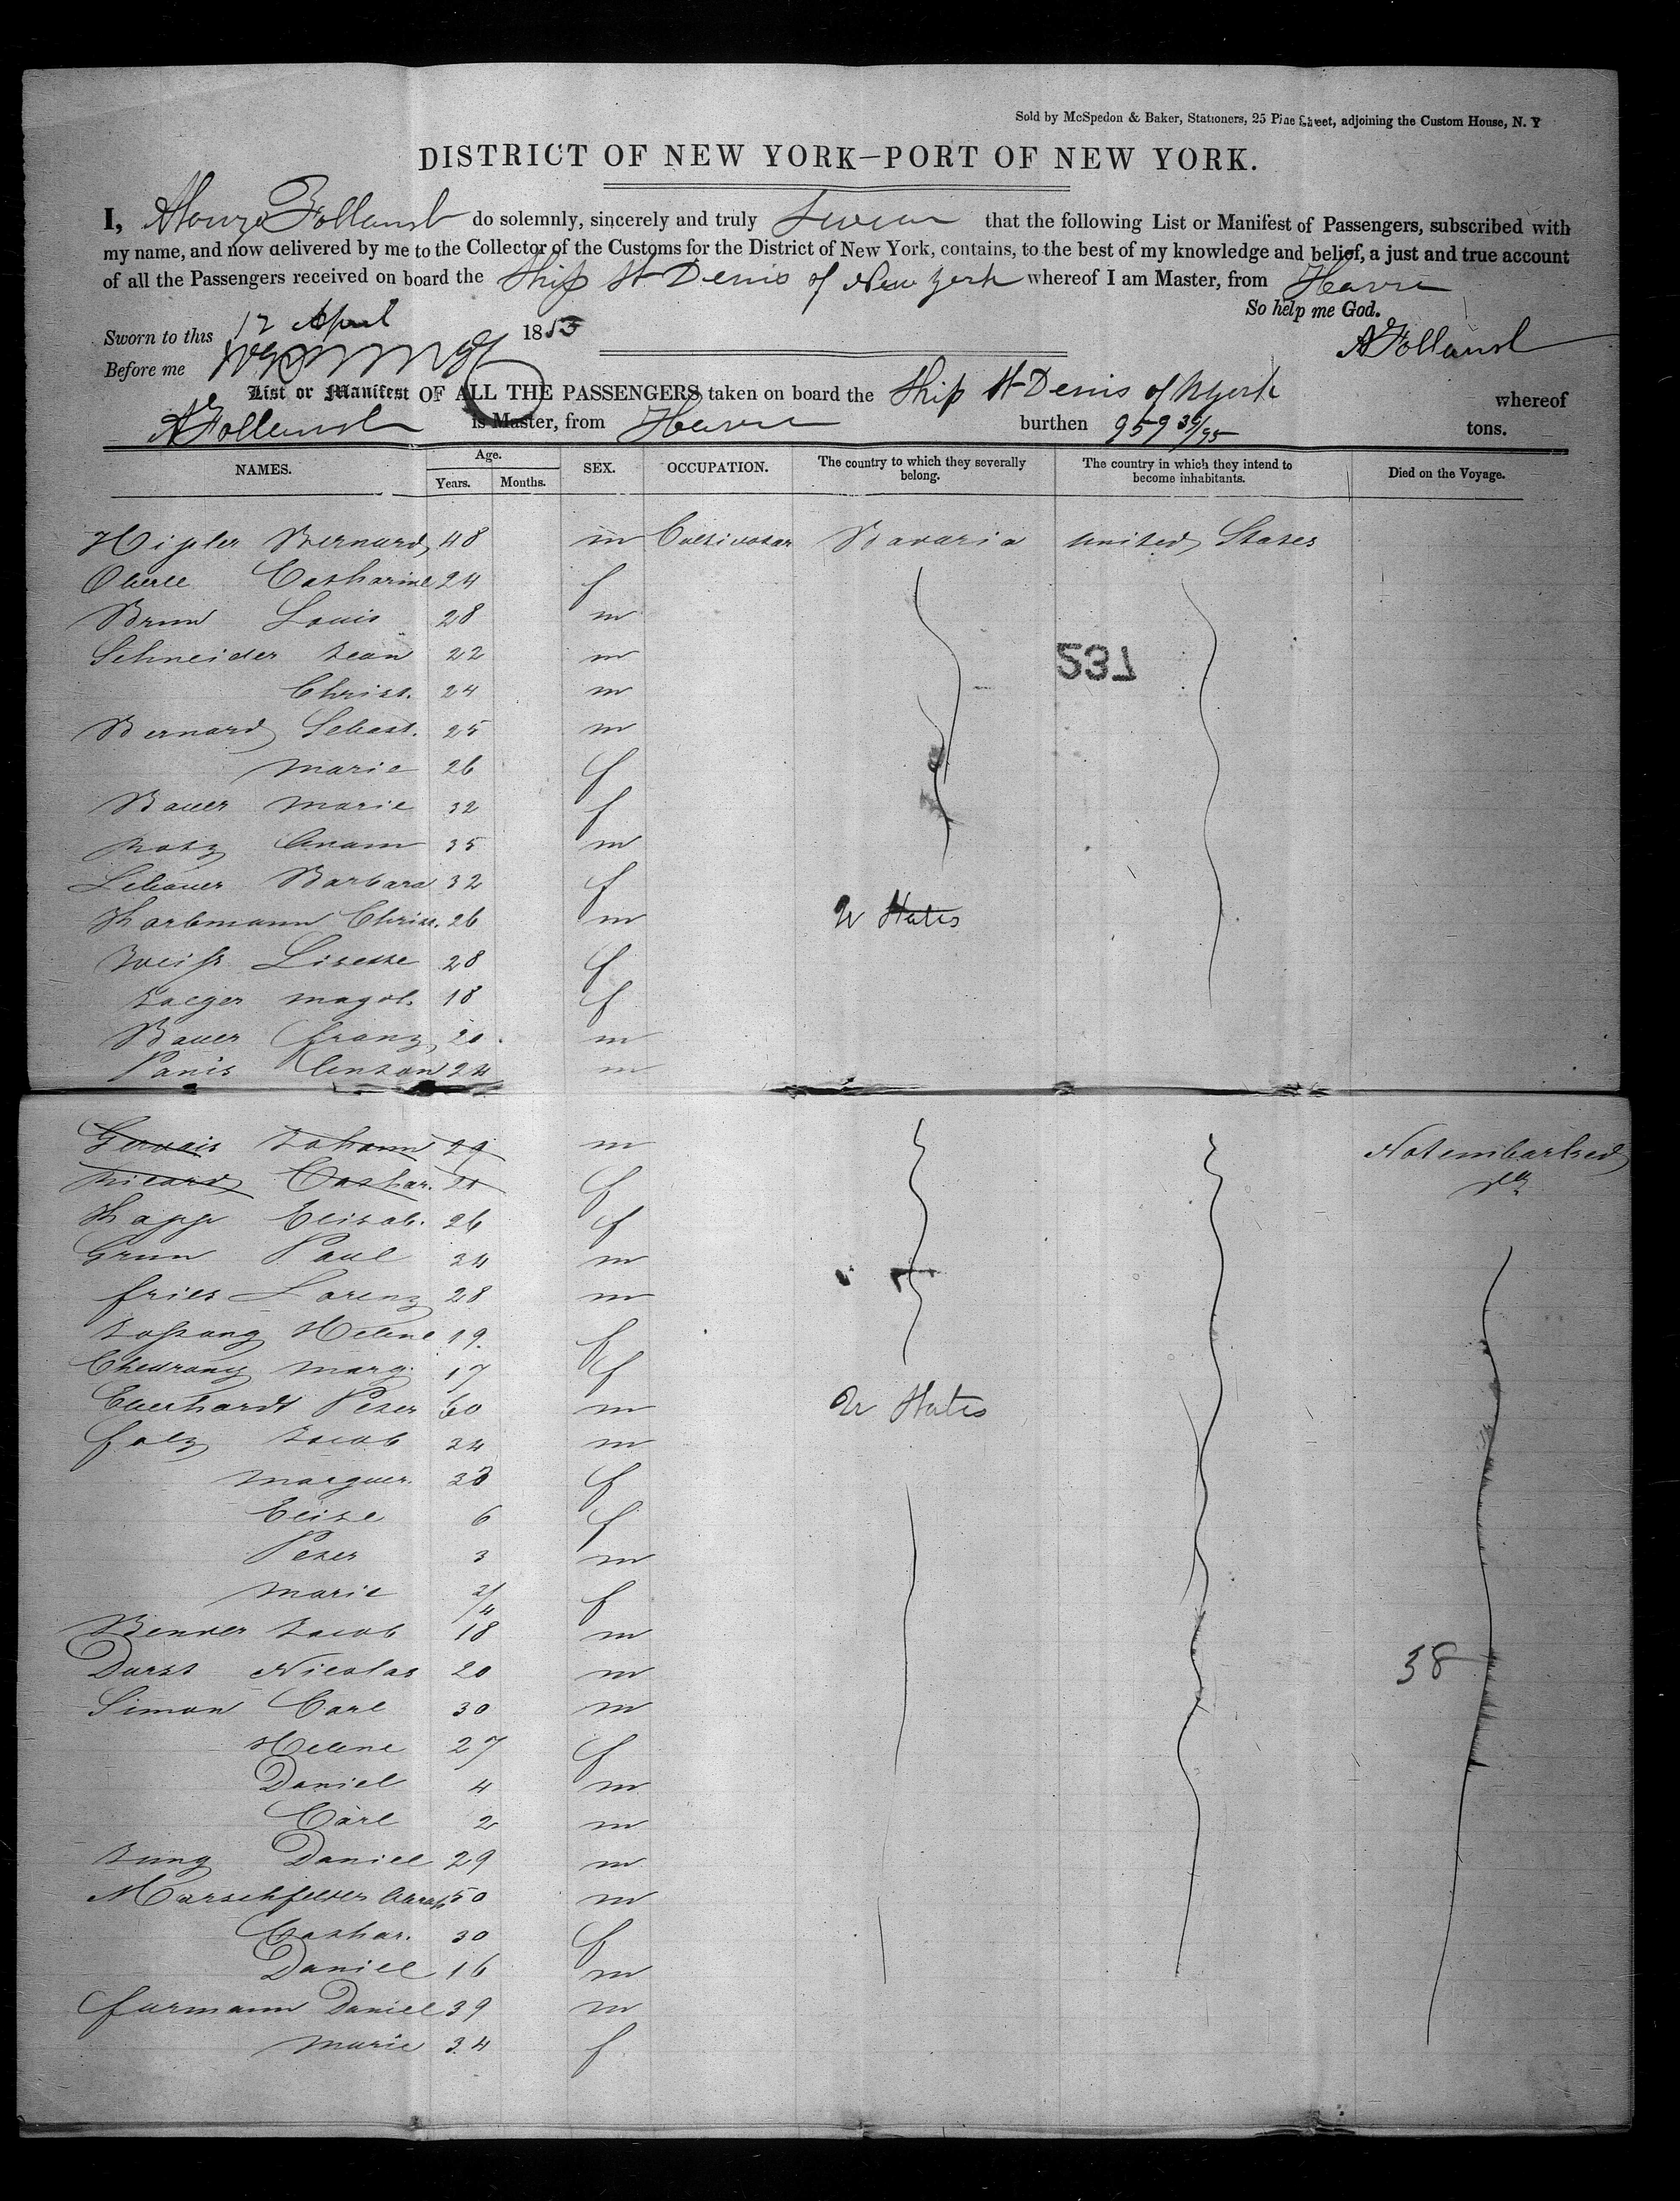 Sold by McSpedon & Baker, Stationers, 25 Pine Street, adjoining the Custom House, N. Y
DISTRICT OF NEW YORK—PORT OF NEW YORK.
I, Alonzo Follansb do solemnly, sincerely and truly Swear that the following List or Manifest of Passengers, subscribed with
my name, and now delivered by me to the Collector of the Customs for the District of New York, contains, to the best of my knowledge and belief, a just and true account
of all the Passengers received on board the Ship St Denis of New York whereof I am Master, from Havre
So help me God.
Sworn to this 12 April 1853
AFollansb
Before me
List or Manifest OF ALL THE PASSENGERS taken on board the Ship St Denis of NYork whereof
AFollansb is Master, from Havre burthen 959 36/95 tons.
NAMES. Age. Years. Months. SEX. OCCUPATION. The country to which they severally belong. The country in which they intend to become inhabitants. Died on the Voyage.
Hipler Bernard 48 m Cultivator Bavaria United States
Oberle Catharine 24 f
Brun Louis 28 m
Schneider Jean 22 m
537
Christ. 24 m
Bernard Sebast. 25 m
Marie 26 f
Bauer Marie 32 f
35 m
Barbara 32 f
Christ. 26 m U States
Weiss Lisette 28 f
Jaeger Magdl. 18 f
Bauer Franz 20 m
Panis Anton 24 m
Gervais Johann 29 m Not embarked
Ricard Cathar. f
Kapp Elisab. 26 f
Grun Paul 34 m
Fries Lorenz 28 m
Helene 19 f
Marg. 17 f
Eberhardt Peter 60 m U States
Folz Jacob 34 m
Marguer. 33 f
Elise 6 f
Peter 3 m
Marie 3/4 f
Bender Jacob 18 m
Durst Nicolas 20 m 38
Simon Carl 30 m
Helene 27 f
Daniel 4 m
Carl 2 m
Jung Daniel 29 m
Marschfelder 50 m
Cathar. 30 f
Daniel 16 m
Furmann Daniel 39 m
Marie 34 f